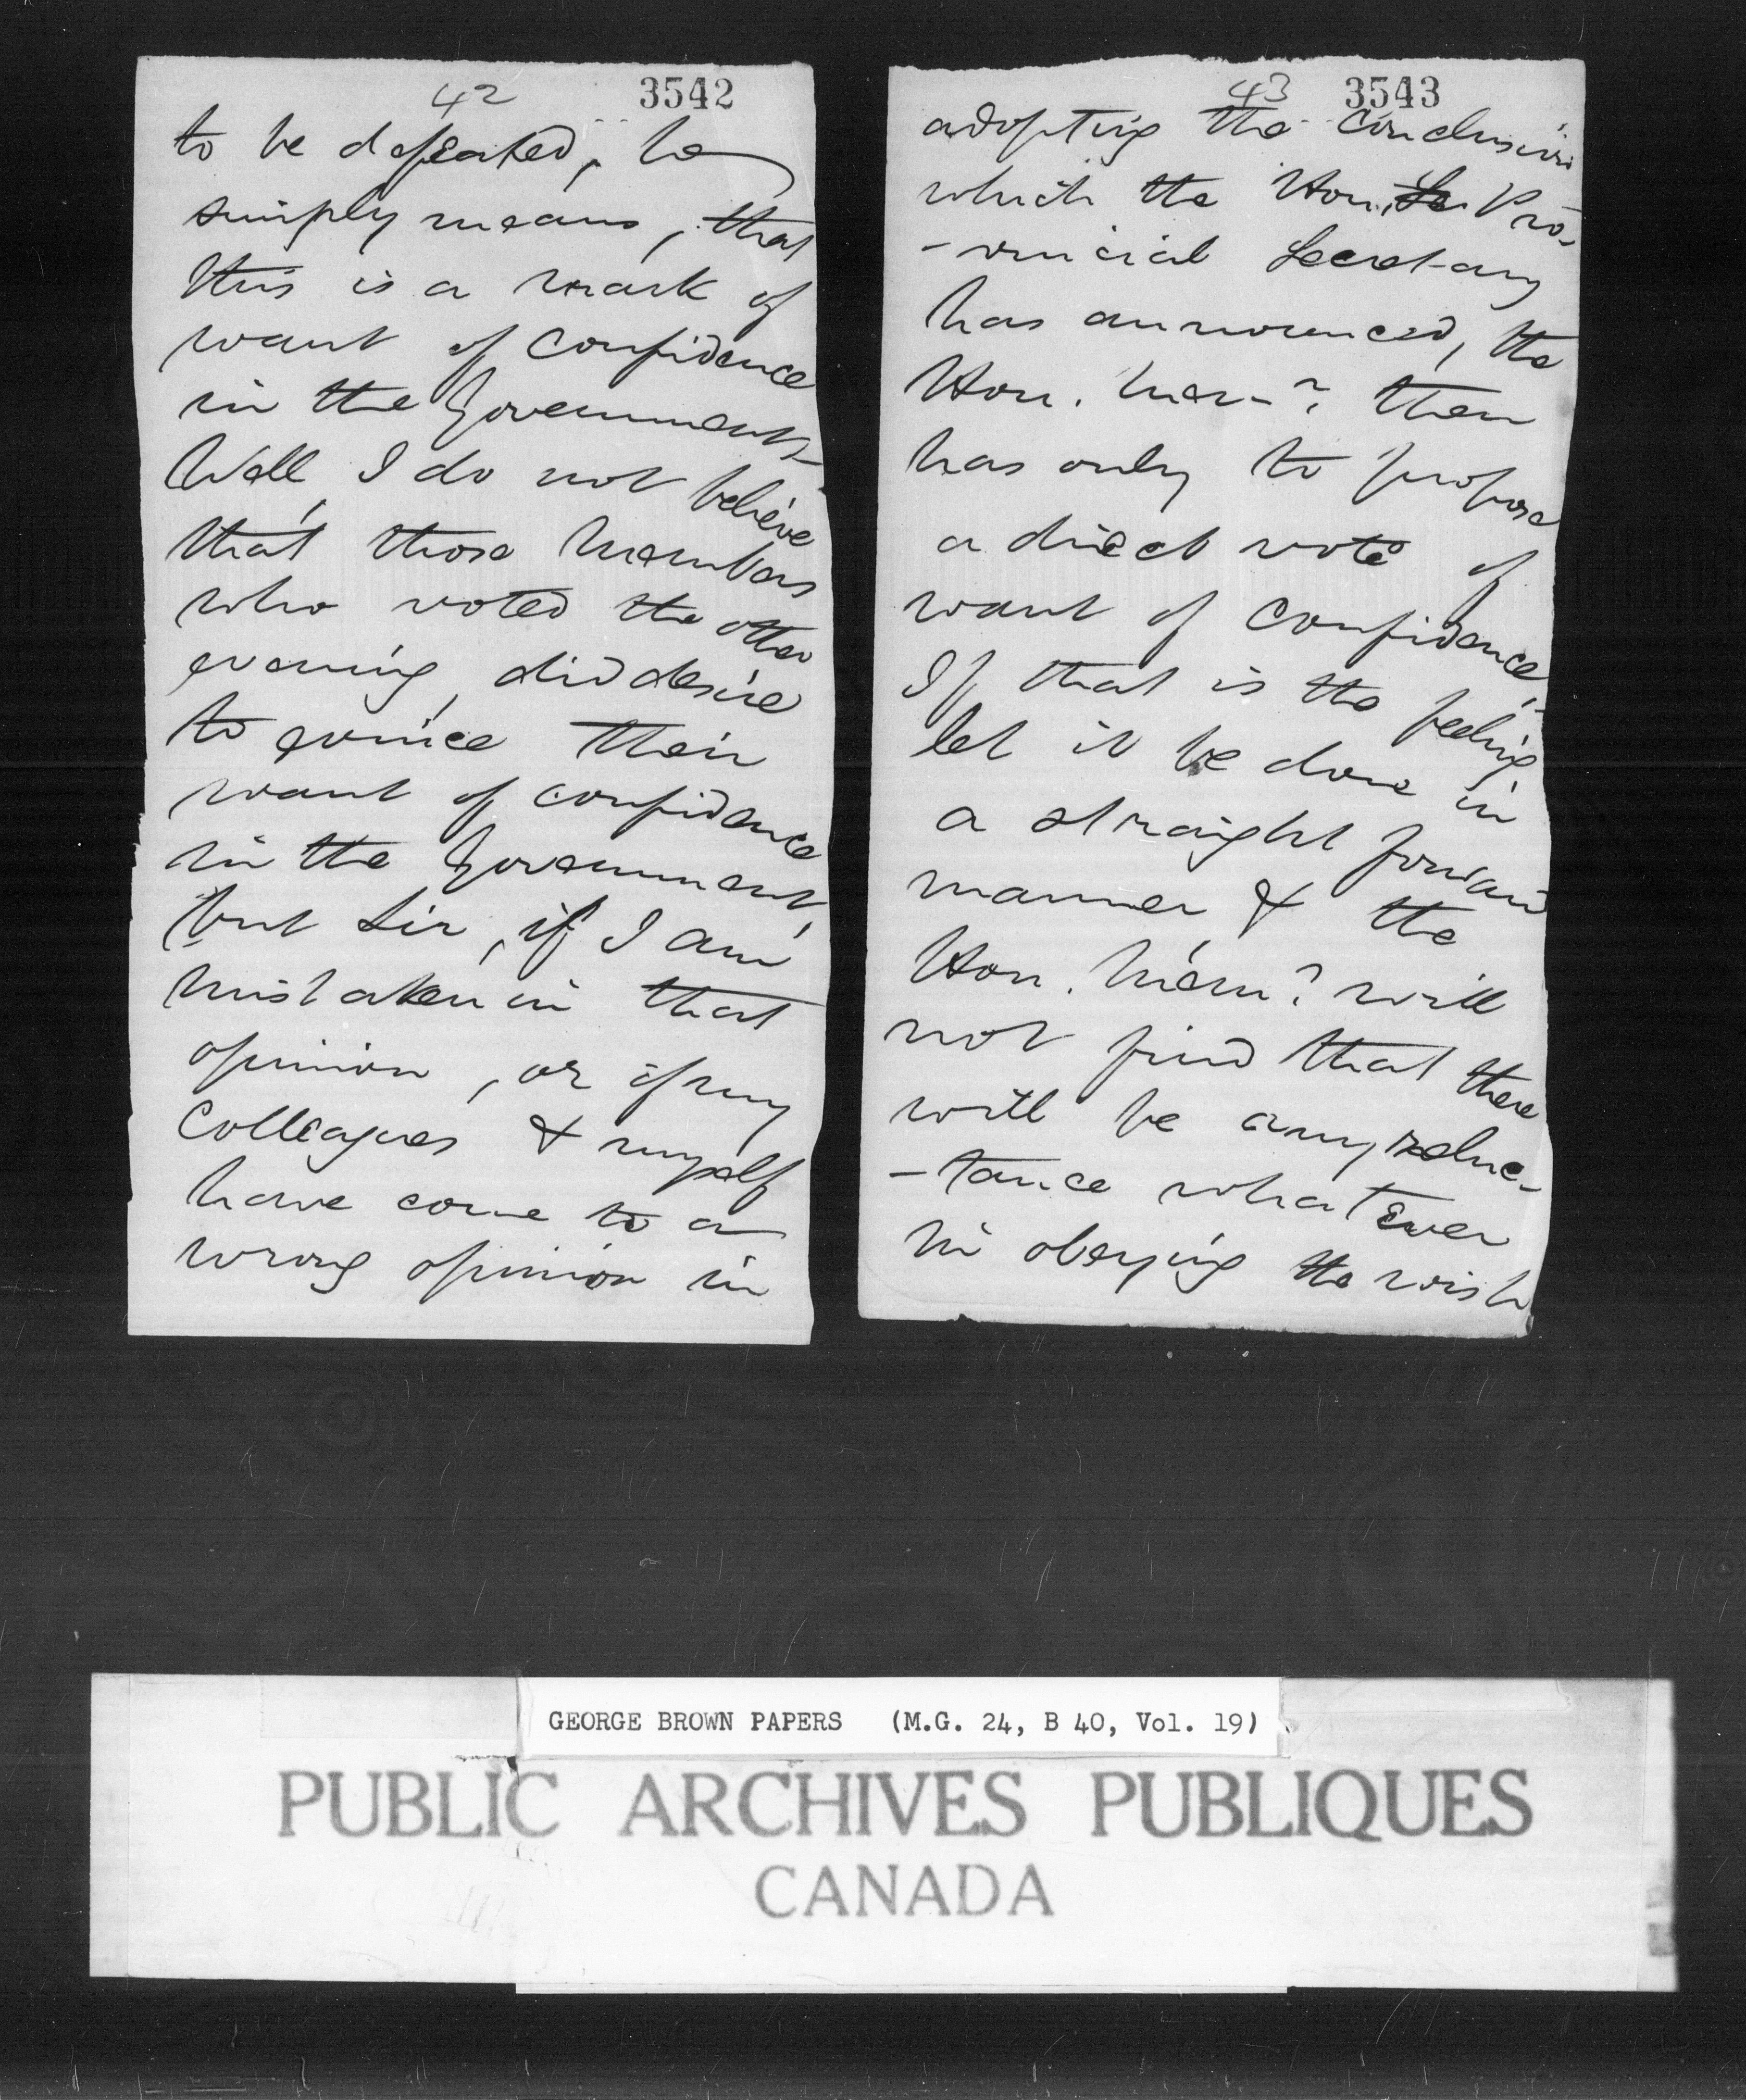 42 3542
to be defeated, he
simply means, that
this is a mark of
want of confidence
in the Government-
Well, I do not believe
that those Members
who voted the other
evening, did desire
to evince their
want of confidence
in the Government,
but Sir, if I am
mistaken in that
opinion, or if my
Colleagues & myself
have come to a
wrong opinion in
43 3543
adopting the conclusion
which the Hon. Pro-
-vincial Secretary
has announced, the
Hon. Mem? then
has only to propose
a direct vote of
want of confidence.
If that is the feeling
let it be done in
a straight forward
manner & the
Hon. Mem? will
not find that there
will be any reluc-
-tance whatever
in obeying the wish
GEORGE BROWN PAPERS (M.G. 24, B 40, Vol. 19)
PUBLIC ARCHIVES PUBLIQUES
CANADA